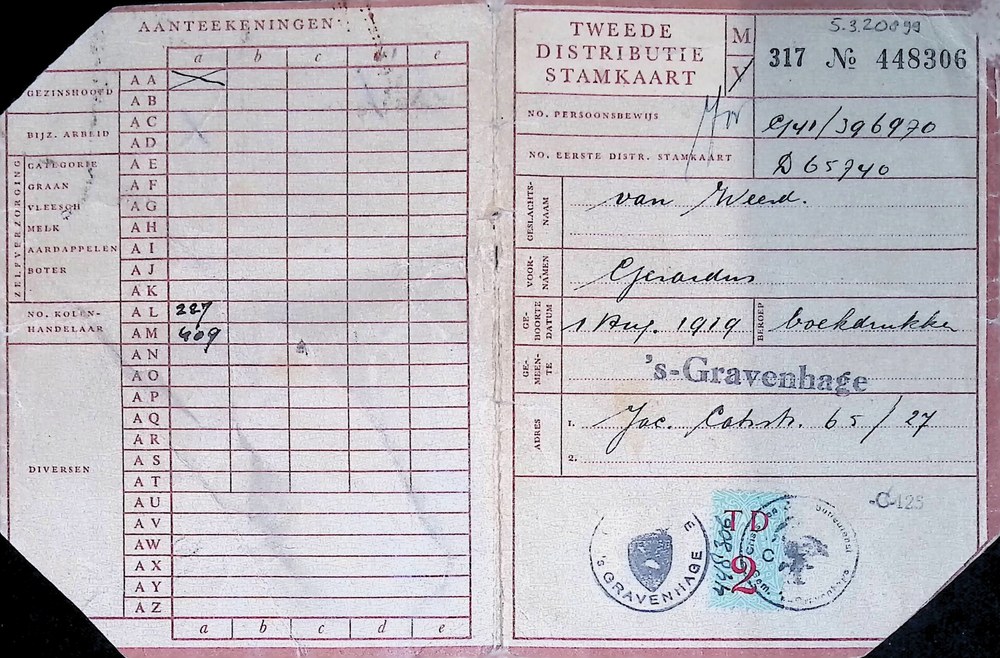 AANTEEKENINGEN
a b c d e
GEZINSHOOFD
AA
AB
BIJZ. ARBEID
AC
AD
ZELFVERZORGING
CATEGORIE
AE
GRAAN
AF
VLEESCH
AG
MELK
AH
AARDAPPELEN
AI
BOTER
AJ
AK
NO. KOLEN-
HANDELAAR
AL 227
AM 409
DIVERSEN
AN
AO
AP
AQ
AR
AS
AT
AU
AV
AW
AX
AY
AZ
a b c d e
5.3.20099
TWEEDE
DISTRIBUTIE
STAMKAART
M
V
317 No 448306
NO. PERSOONSBEWIJS
G41/396970
NO. EERSTE DISTR. STAMKAART
D 65740
GESLACHTS-
NAAM
van Weerd.
VOOR-
NAMEN
Gerardus
GE-
BOORTE
DATUM
1 Aug. 1919
BEROEP
boekdrukker
GE-
MEEN-
TE
's-Gravenhage
ADRES
1. Jac. Catsstr. 65/27
2.
-C-125
TD
2
448306
's GRAVENHAGE
C